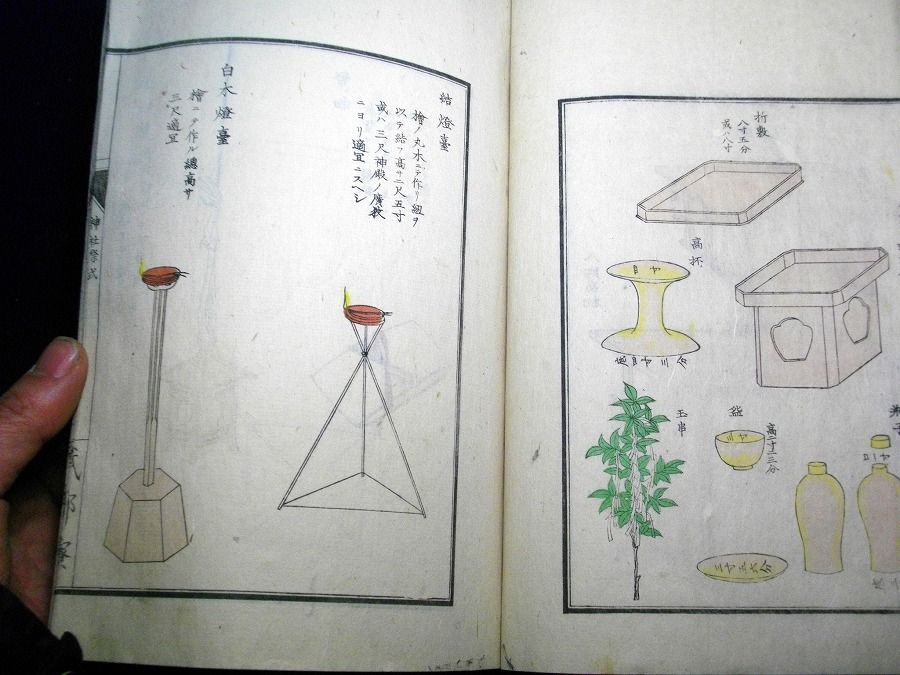 折敷
八寸五分
或ハ八寸
高杯
玉串
盌
高二寸三分
結燈臺
檜ノ丸木ニテ作リ紐ヲ
以テ結フ高サ二尺五寸
或ハ三尺神殿ノ廣狹
ニヨリ適冝ニスヘシ
白木燈臺
檜ニテ作ル總高サ
三尺適冝
神社祭式
式部寮